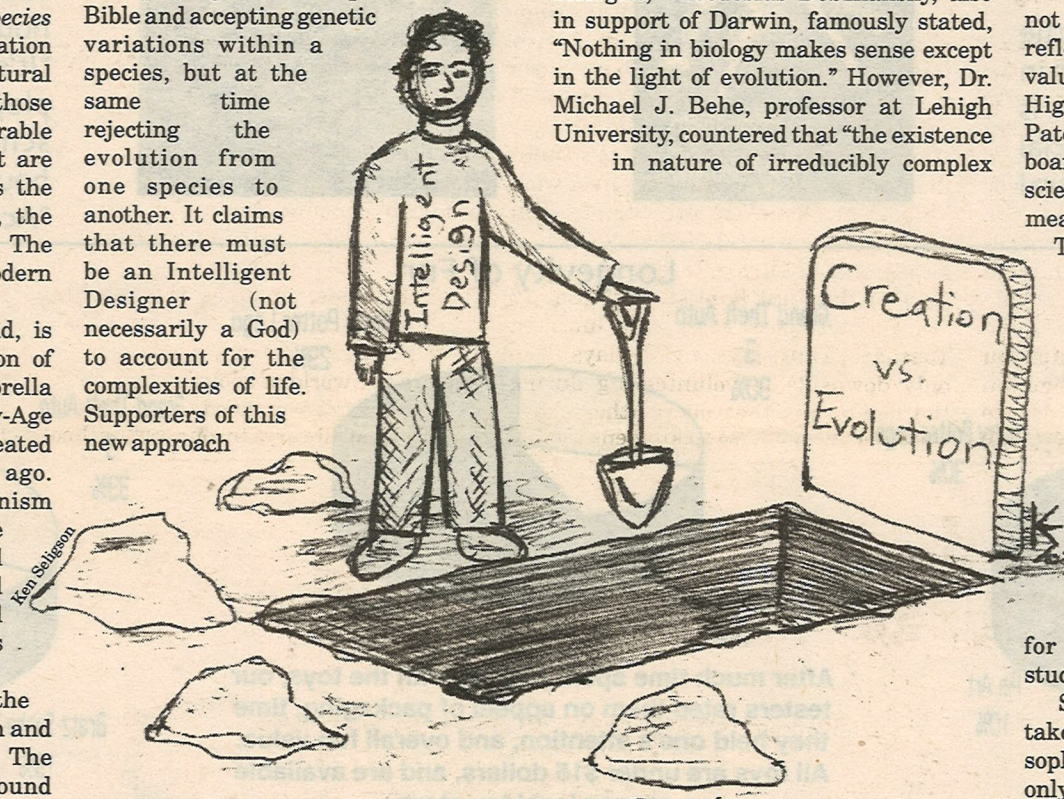 pecies
ation
tural
those
rable
t are
s the
, the
The
odern
d, is
on of
orella
y-Age
eated
ago.
nism
e
s
the
n and
The
ound
Ken Seligson
Bible and accepting genetic
variations within a
species, but at the
same time
rejecting the
evolution from
one species to
another. It claims
that there must
be an Intelligent
Designer (not
necessarily a God)
to account for the
complexities of life.
Supporters of this
new approach
Intelligent
Design
in support of Darwin, famously stated,
“Nothing in biology makes sense except
in the light of evolution.” However, Dr.
Michael J. Behe, professor at Lehigh
University, countered that “the existence
in nature of irreducibly complex
Creation
vs.
Evolution
not
refl
valu
Hig
Pate
boar
scie
mea
T
for
stud
S
take
soph
only